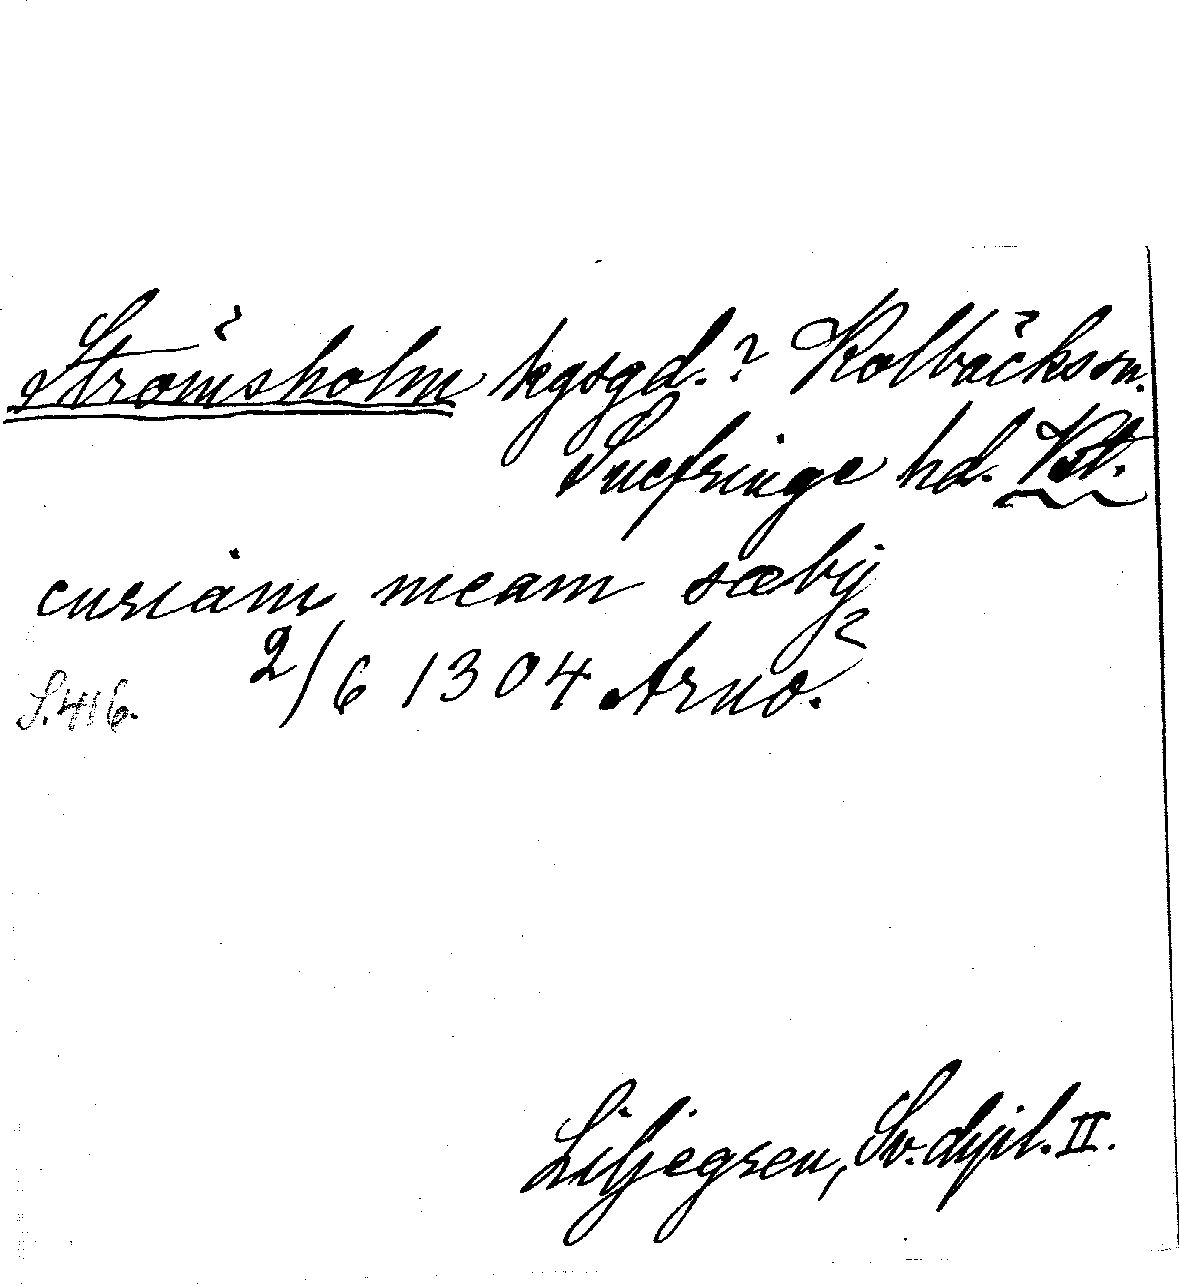 Strömsholm kgsgd.? Kolbäcks sn.
Snefringe hd. Vstl.
curiam meam sæby
2/6 1304 Arnö?
S. 416.
Liljegren, Sv. dipl. II.